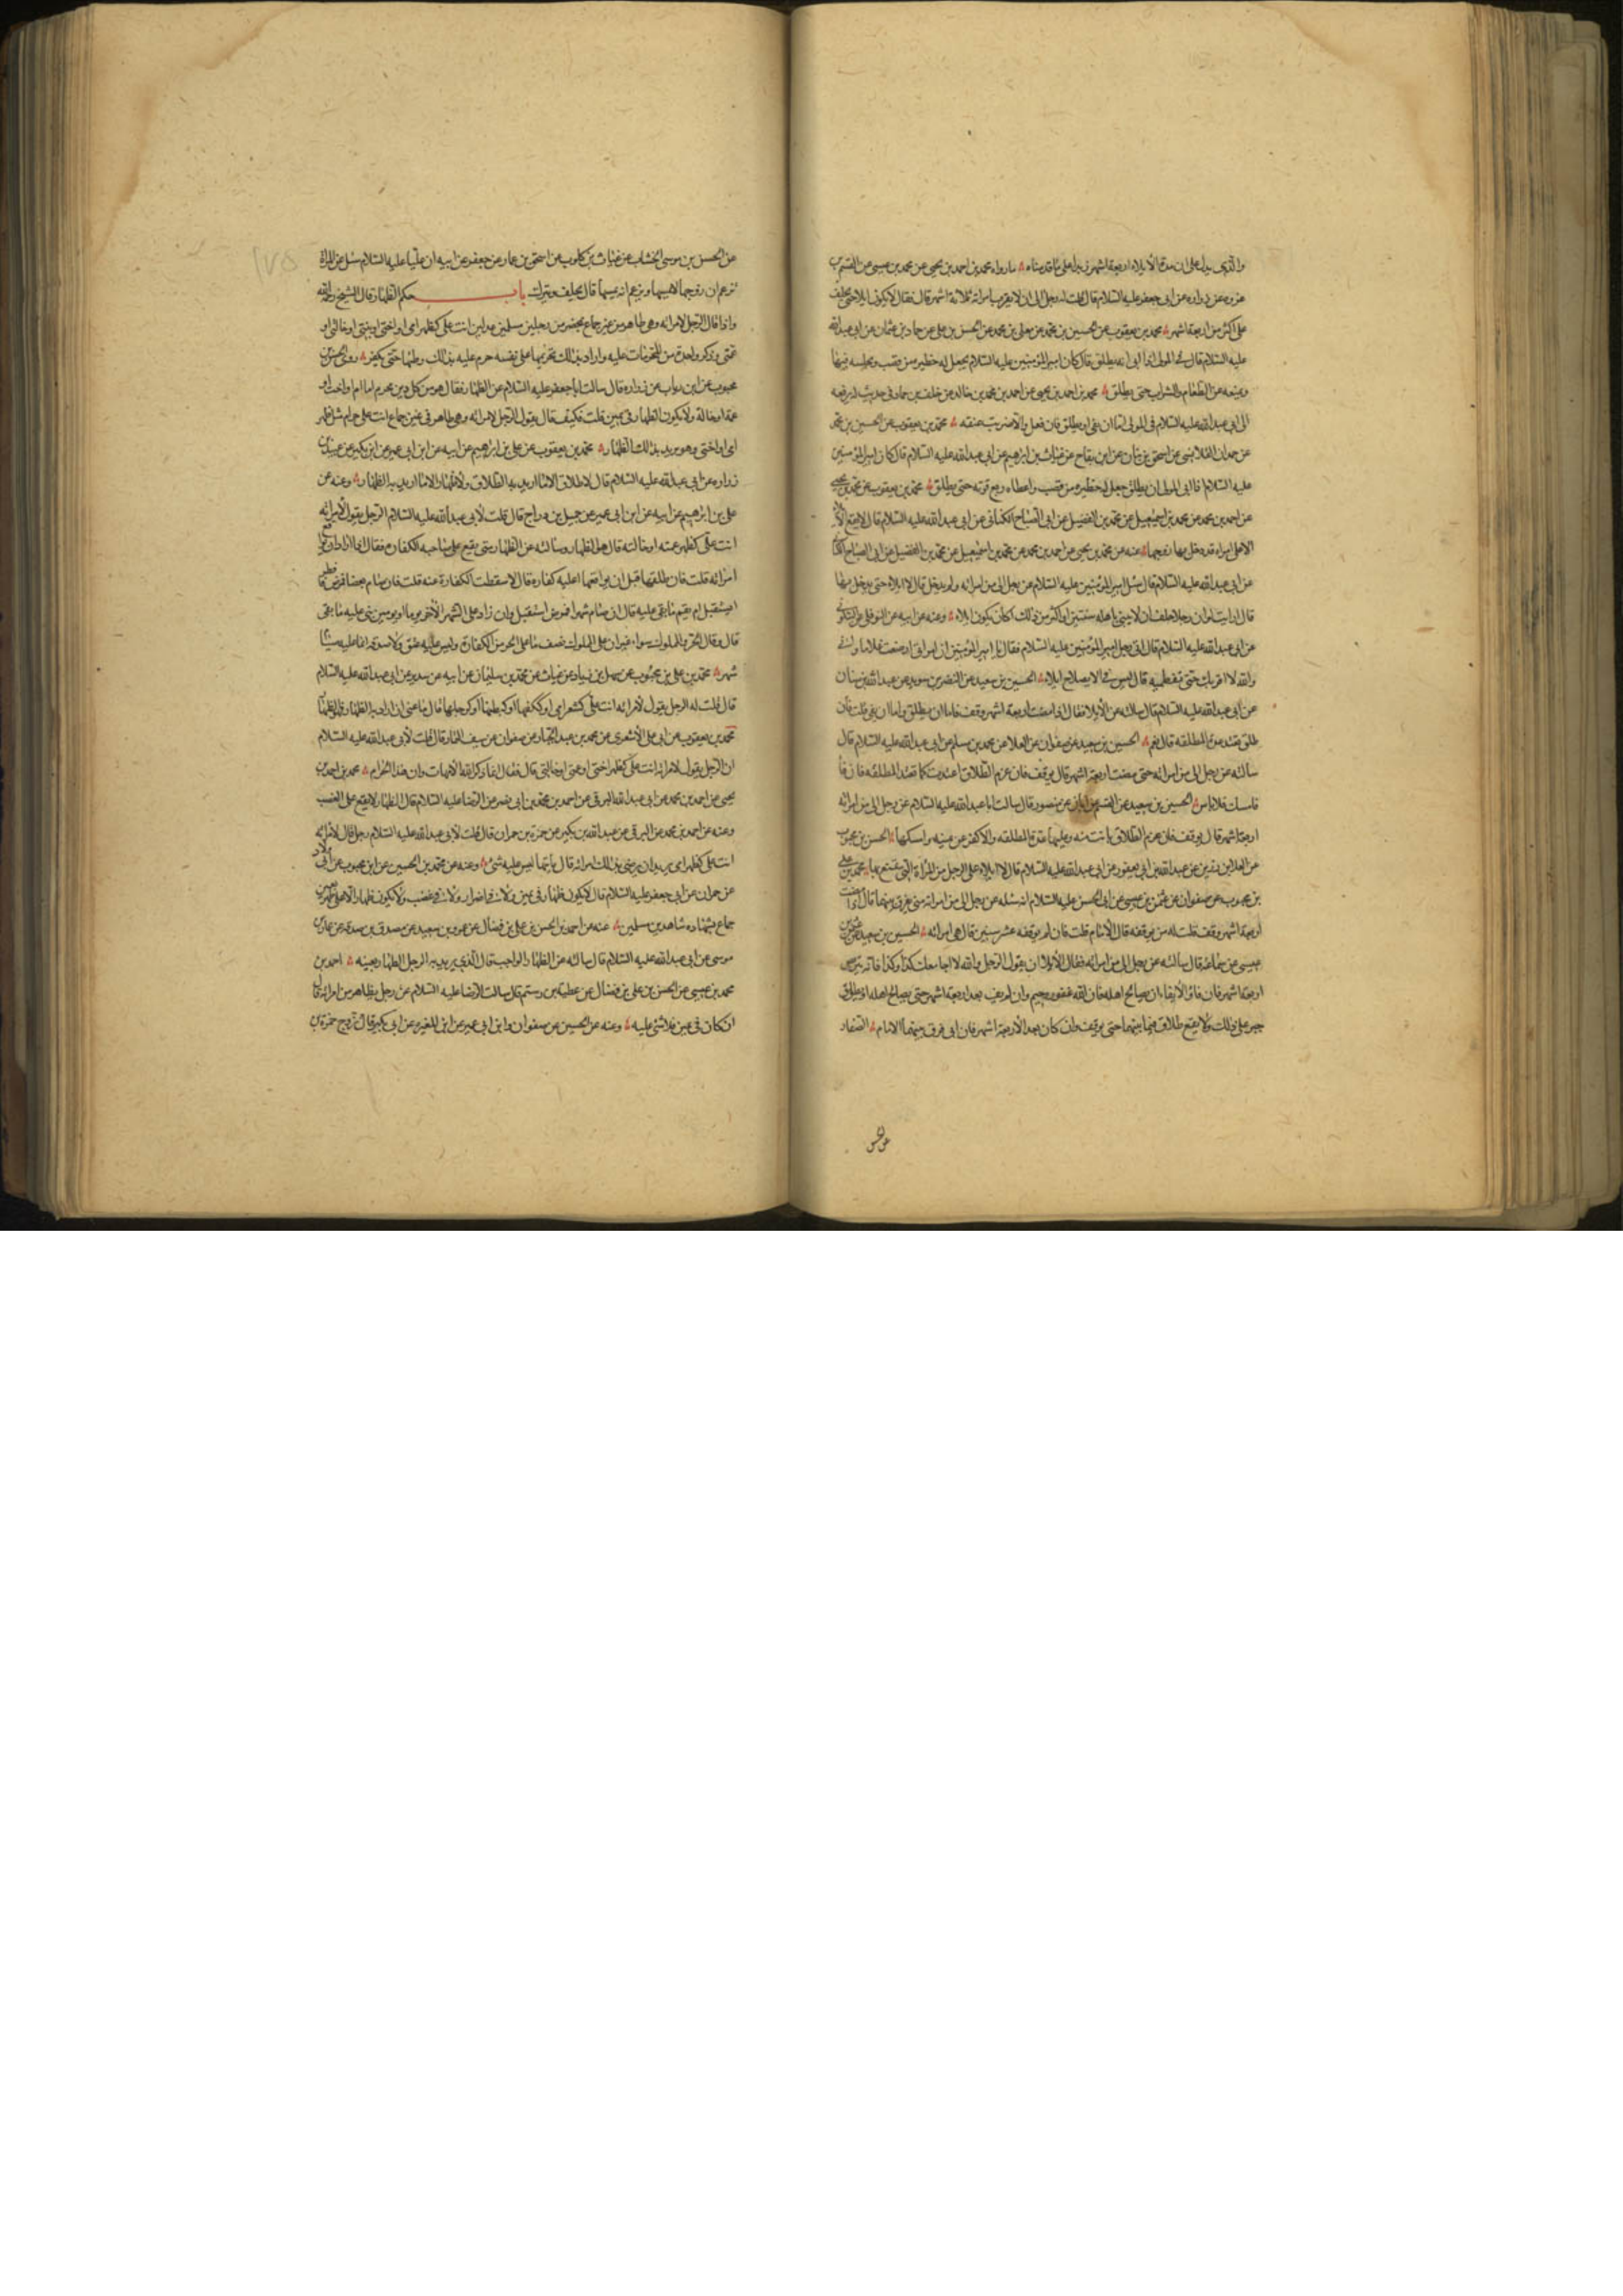 والذي يدل على ان مدة الايلاء اربعة اشهر زايدا على ما قدمناه ما رواه محمد بن احمد بن يحيى عن محمد بن عيسى عن القسم بن
عروه عن زراره عن ابي جعفر عليه السلام قال قلت له رجل الى ان لا يقرب امراته ثلاثة اشهر قال فقال لا يكون ايلاء حتى يحلف
على اكثر من اربعة اشهر محمد بن يعقوب عن الحسين بن محمد عن معلى بن محمد عن الحسن بن على عن حماد بن عثمان عن ابي عبدالله
عليه السلام قال في المولى اذا ابى ان يطلق قال كان امير المومنين عليه السلام يجعل له حظيره من قصب ويحبسه فيها
ويمنعه من الطعام والشراب حتى يطلق محمد بن احمد بن يحيى عن احمد بن محمد بن خالد عن خلف بن حماد في حديث له يرفعه
الى ابي عبدالله عليه السلام في المولى اما ان يفى او يطلق فان فعل والا ضربت عنقه محمد بن يعقوب عن الحسين بن محمد
عن حمدان القلانسى عن اسحق بن بنان عن ابن بقاح عن غياث بن ابرهيم عن ابي عبدالله عليه السلام قال كان امير المومنين
عليه السلام اذا ابى المولى ان يطلق جعل له حظيره من قصب واعطاه ربع قوته حتى يطلق محمد بن يعقوب عن محمد بن يحيى
عن احمد بن محمد عن محمد بن اسمعيل عن محمد بن الفضيل عن ابي الصباح الكنانى عن ابي عبدالله عليه السلام قال لا يقع الايلاء
الا على امراه قد دخل بها زوجها عنه عن محمد بن يحيى عن احمد بن محمد عن محمد بن اسمعيل عن محمد بن الفضيل عن ابي الصباح الكناني
عن ابي عبدالله عليه السلام قال سئل امير المومنين عليه السلام عن رجل الى من امراته ولم يدخل بها قال لا ايلاء حتى يدخل بها
قال ارايت لو ان رجلا حلف ان لا يبنى باهله سنتين او اكثر من ذلك اكان يكون ايلاء وعنه عن ابيه عن النوفلى عن السكونى
عن ابي عبدالله عليه السلام قال اتى رجل امير المومنين عليه السلام فقال يا امير المومنين ان امراتى ارضعت غلاما وانى
والله لا اقربك حتى تفطميه قال ليس في الاصلاح ايلاء الحسين بن سعيد عن النضر بن سويد عن عبدالله بن سنان
عن ابي عبدالله عليه السلام قال سالته عن الايلاء فقال اذا مضت اربعة اشهر وقف فاما ان يطلق واما ان يفى قلت فان
طلق تعتد عدة المطلقه قال نعم الحسين بن سعيد عن صفوان عن العلا عن محمد بن مسلم عن ابي عبدالله عليه السلام قال
سالته عن رجل الى من امراته حتى مضت اربعة اشهر قال يوقف فان عزم الطلاق اعتدت كما تعتد المطلقه فان فا
فامسك فلا باس الحسين بن سعيد عن القسم عن ابان عن منصور قال سالت ابا عبدالله عليه السلام عن رجل الى من امراته
اربعة اشهر قال يوقف فان عزم الطلاق بانت منه وعليها عدة المطلقه والا كفر عن يمينه وامسكها الحسن بن محبوب
عن العلا بن رزين عن عبدالله بن ابي يعفور عن ابي عبدالله عليه السلام قال لا ايلاء على الرجل من المراة التى تمتع بها محمد بن على
بن محبوب عن صفوان عن عثمن بن عيسى عن ابي الحسن عليه السلام انه سئله عن رجل الى من امراته متى يفرق بينهما قال اذا مضت
اربعة اشهر وقف قلت له من يوقفه قال الامام قلت فان لم يوقفه عشر سنين قال هى امراته الحسين بن سعيد عن عثمن بن
عيسى عن سماعه قال سالته عن رجل الى من امراته فقال الايلاء ان يقول الرجل والله لا اجامعك كذا وكذا فانه يتربص
اربعة اشهر فان فا والايفاء ان يصالح اهله فان الله غفور رحيم وان لم يف بعد اربعة اشهر حتى يصالح اهله او يطلق
جبر على ذلك ولا يقع طلاق فيما بينهما حتى يوقف وان كان بعد الاربعة اشهر فان ابى فرق بينهما الامام الصفار
عن الحسن
عن الحسن بن موسى الخشاب عن غياث بن كلوب عن اسحق بن عمار عن جعفر عن ابيه ان عليا عليه السلام سئل عن المراة
تزعم ان زوجها لا يمسها ويزعم انه يمسها قال يحلف ويترك باب حكم الظهار قال الشيخ رحمه الله
واذا قال الرجل لامراته وهى طاهر من غير جماع بمحضر من رجلين مسلمين عدلين انت على كظهر امى او اختى او بنتى او خالتى او
عمتى وذكر واحدة من المحرمات عليه واراد بذلك تحريمها على نفسه حرم عليه بذلك وطئها حتى يكفر روى الحسن بن
محبوب عن ابن رياب عن زراره قال سالت ابا جعفر عليه السلام عن الظهار فقال هو من كل ذى محرم اما ام او اخت او
عمة او خالة ولا يكون الظهار في يمين قلت فكيف قال يقول الرجل لامراته وهى طاهر في غير جماع انت على حرام مثل ظهر
امى او اختى وهو يريد بذلك الظهار محمد بن يعقوب عن على بن ابرهيم عن ابيه عن ابن ابي عمير عن ابن بكير عن عبيد بن
زراره عن ابي عبدالله عليه السلام قال لا طلاق الا ما اريد به الطلاق ولا ظهار الا ما اريد به الظهار وعنه عن
على بن ابرهيم عن ابيه عن ابن ابي عمير عن جميل بن دراج قال قلت لابي عبدالله عليه السلام الرجل يقول لامراته
انت على كظهر عمته او خالته قال هو الظهار وسالته عن الظهار متى يقع على صاحبه الكفاره فقال اذا اراد ان يواقع
امراته قلت فان طلقها قبل ان يواقعها اعليه كفاره قال لا سقطت الكفارة عنه قلت فان صام بعضا فمرض فافطر
ايستقبل ام يتم ما بقى عليه قال ان صام شهرا فمرض استقبل وان زاد على الشهر الاخر يوما او يومين بنى عليه ما بقى
قال وقال الحر والمملوك سواء غير ان على المملوك نصف ما على الحر من الكفارة وليس عليه عتق ولا صدقه انما عليه صيام
شهر محمد بن على بن محبوب عن سهل بن زياد عن غياث عن محمد بن سليمان عن ابيه عن سدير عن ابي عبدالله عليه السلام
قال قلت له الرجل يقول لامراته انت على كشعر امى او ككفها او كبطنها او كرجلها قال ما عنى ان اراد به الظهار فهو الظهار
محمد بن يعقوب عن ابي على الاشعرى عن محمد بن عبد الجبار عن صفوان عن سيف التمار قال قلت لابي عبدالله عليه السلام
ان الرجل يقول لامراته انت على كظهر اختى او عمتى او خالتى قال فقال انما ذكر الله الامهات وان هذا لحرام محمد بن احمد بن
يحيى عن احمد بن محمد عن ابي عبدالله البرقى عن احمد بن محمد بن ابي نصر عن الرضا عليه السلام قال الظهار لا يقع على الغضب
وعنه عن احمد بن محمد عن البرقى عن عبدالله بن بكير عن حمزة بن حمران قال قلت لابي عبدالله عليه السلام رجل قال لامراته
انت على كظهر امى يريد ان يرضى بذلك امراته قال ياتيها ليس عليه شئ وعنه عن محمد بن الحسين عن ابن محبوب عن ابي ولاد
عن حمران عن ابي جعفر عليه السلام قال لا يكون ظهار في يمين ولا في اضرار ولا في غضب ولا يكون ظهار الا على طهر من غير
جماع بشهاده شاهدين مسلمين عنه عن احمد بن الحسن بن على بن فضال عن عمرو بن سعيد عن مصدق بن صدقه عن عمار بن
موسى عن ابي عبدالله عليه السلام قال سالته عن الظهار الواجب قال الذي يريد به الرجل الظهار بعينه احمد بن
محمد بن عيسى عن الحسن بن على بن فضال عن عطيه بن رستم قال سالت الرضا عليه السلام عن رجل يظاهر من امراته قال
ان كان في يمين فلا شئ عليه وعنه عن الحسين عن صفوان وابن ابي عمير عن ابن المغيره عن ابي بكير قال تزوج حمزه بن